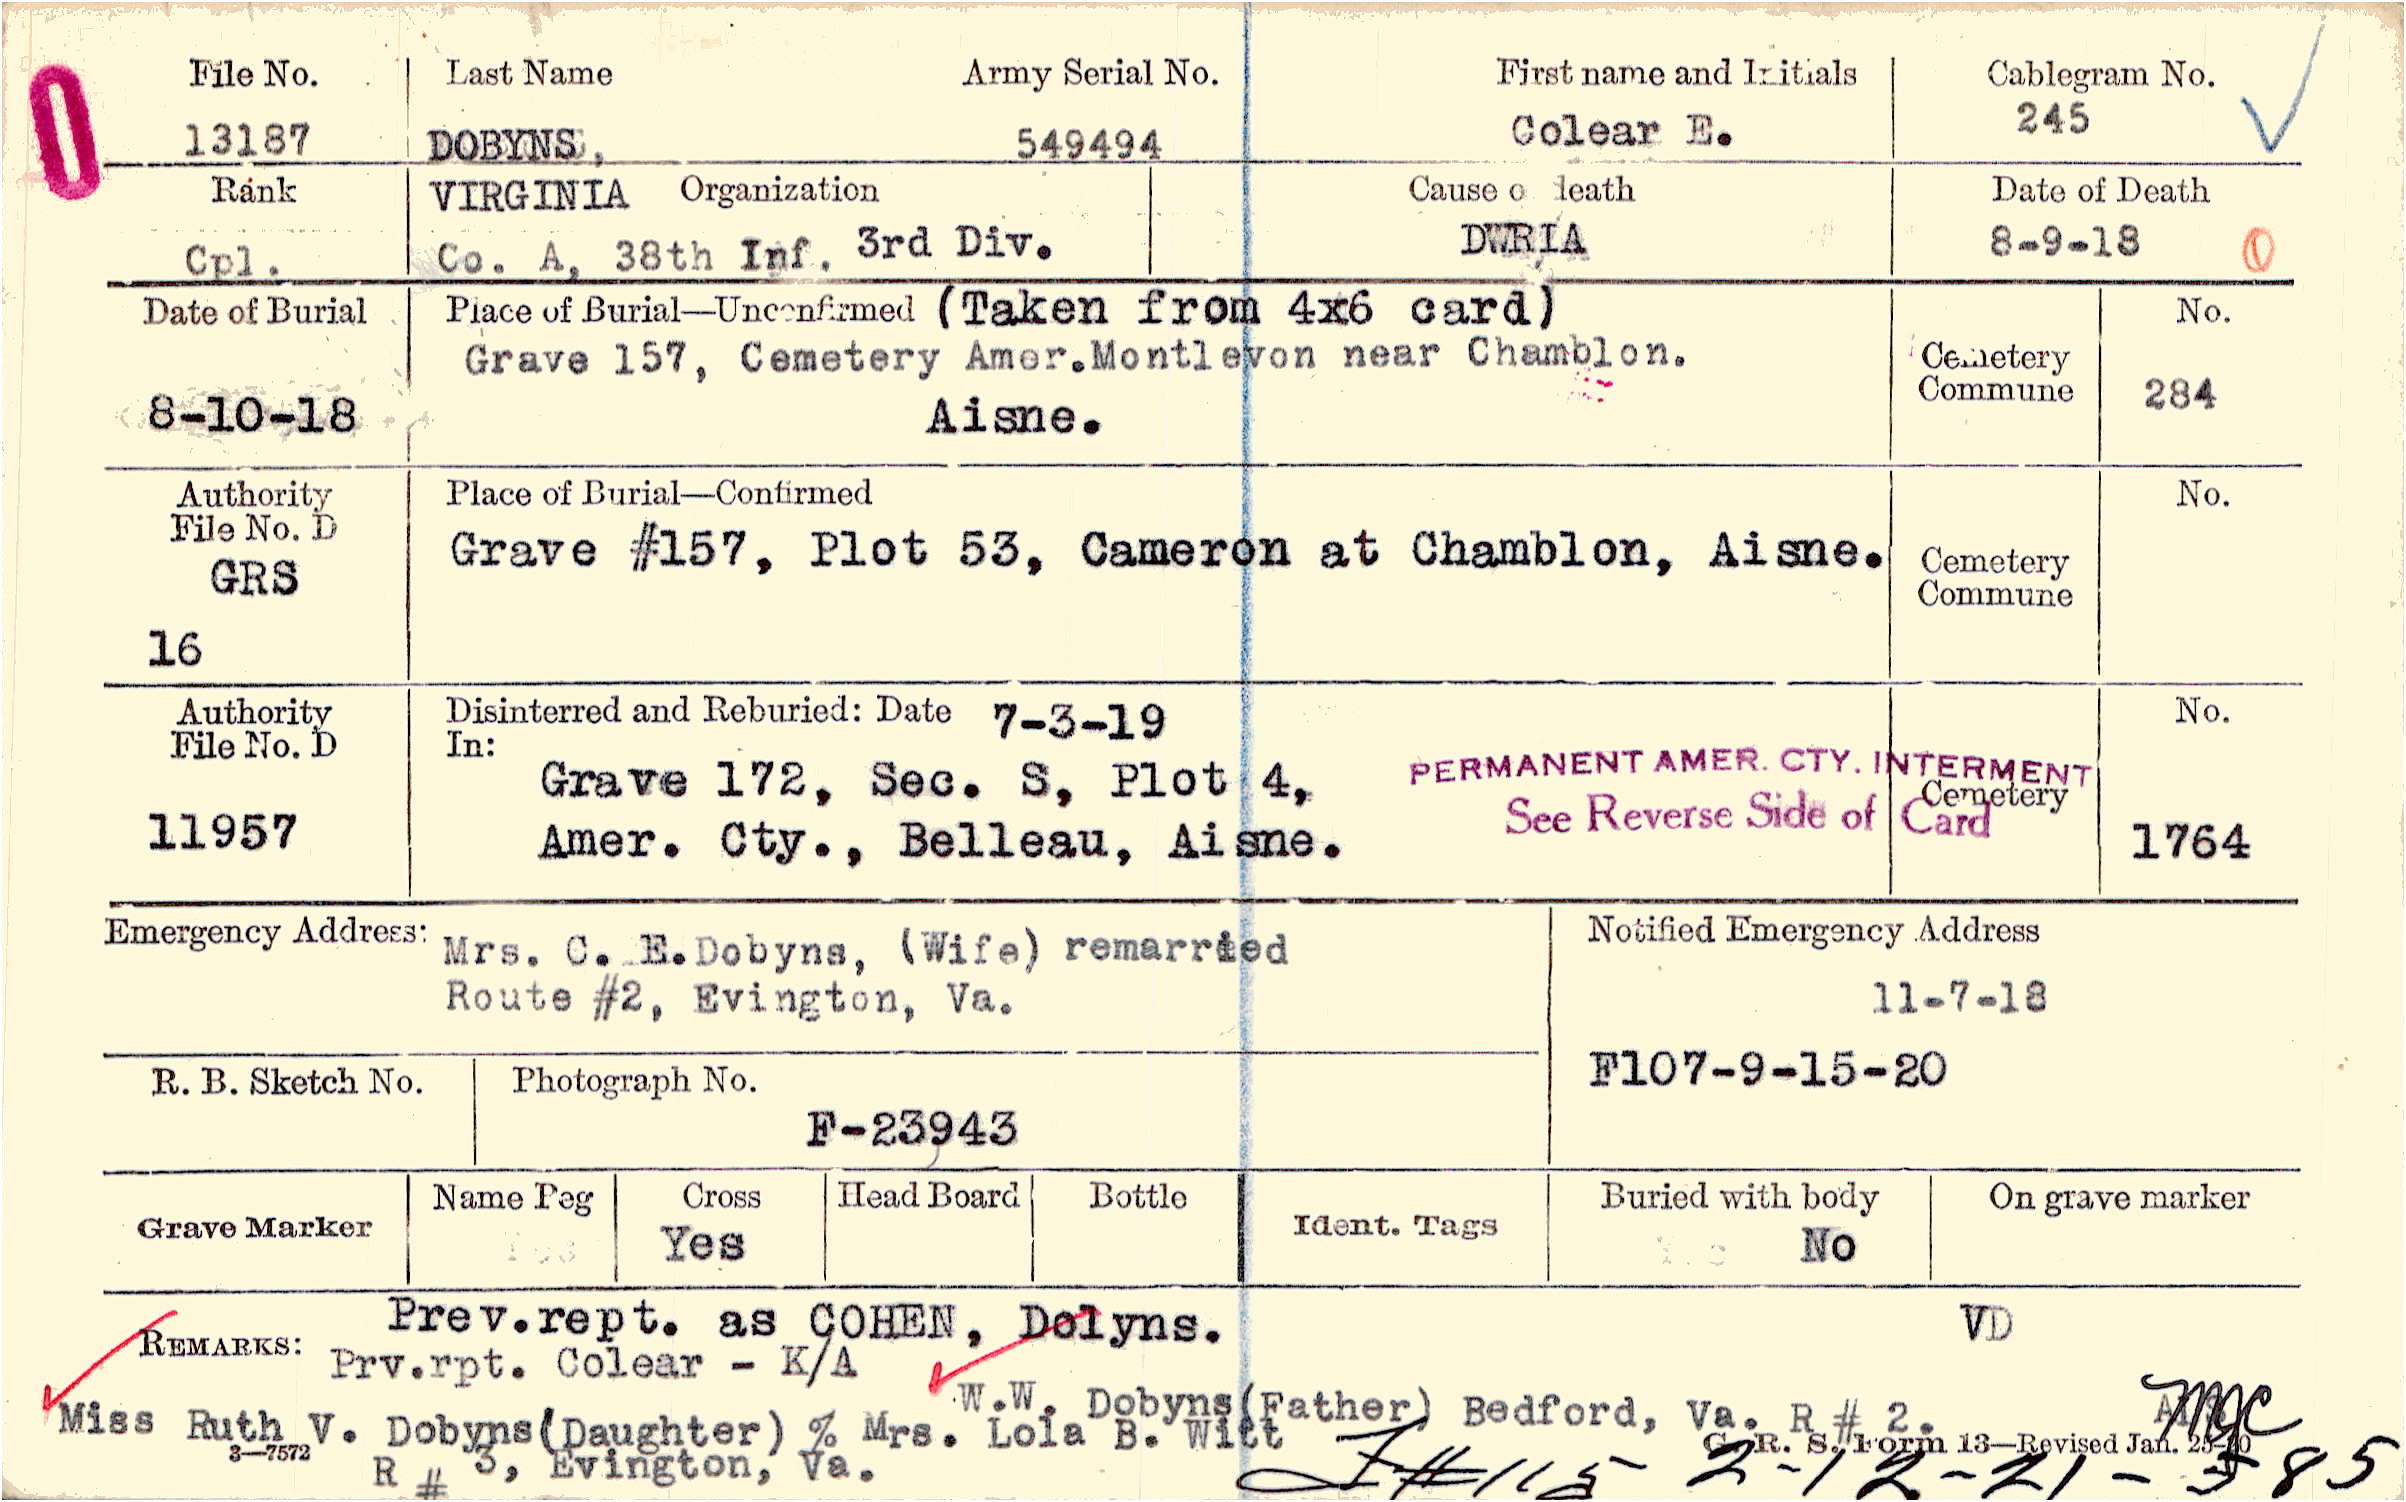 File No. Last Name Army Serial No. First name and Initials Cablegram No.
13187 DOBYNS, 549494 Colear E. 245
Rank VIRGINIA Organization Cause o death Date of Death
Cpl. Co. A, 38th Inf. 3rd Div. DWRIA 8-9-18
Date of Burial Place of Burial—Unconfirmed (Taken from 4x6 card) No.
Grave 157, Cemetery Amer.Montlevon near Chamblon. Cemetery
Commune 284
8-10-18 Aisne.
Authority Place of Burial—Confirmed No.
File No. D
GRS Grave #157, Plot 53, Cameron at Chamblon, Aisne. Cemetery
Commune
16
Authority Disinterred and Reburied: Date 7-3-19 No.
File No. D In:
Grave 172, Sec. S, Plot 4, PERMANENT AMER. CTY. INTERMENT
Cemetery
See Reverse Side of Card
11957 Amer. Cty., Belleau, Aisne. 1764
Emergency Address: Mrs. C. E.Dobyns, (Wife) remarried Notified Emergency Address
Route #2, Evington, Va. 11-7-18
F107-9-15-20
R. B. Sketch No. Photograph No.
F-23943
Grave Marker Name Peg Cross Head Board Bottle Ident. Tags Buried with body On grave marker
Yes No
Prev.rept. as COHEN, Dolyns. VD
REMARKS: Prv.rpt. Colear - K/A
W.W. Dobyns(Father) Bedford, Va. R # 2.
Miss Ruth V. Dobyns(Daughter) % Mrs. Lola B. Witt
3—7572 G. R. S. Form 13—Revised Jan.
R # 3, Evington, Va.
2-12-21-385